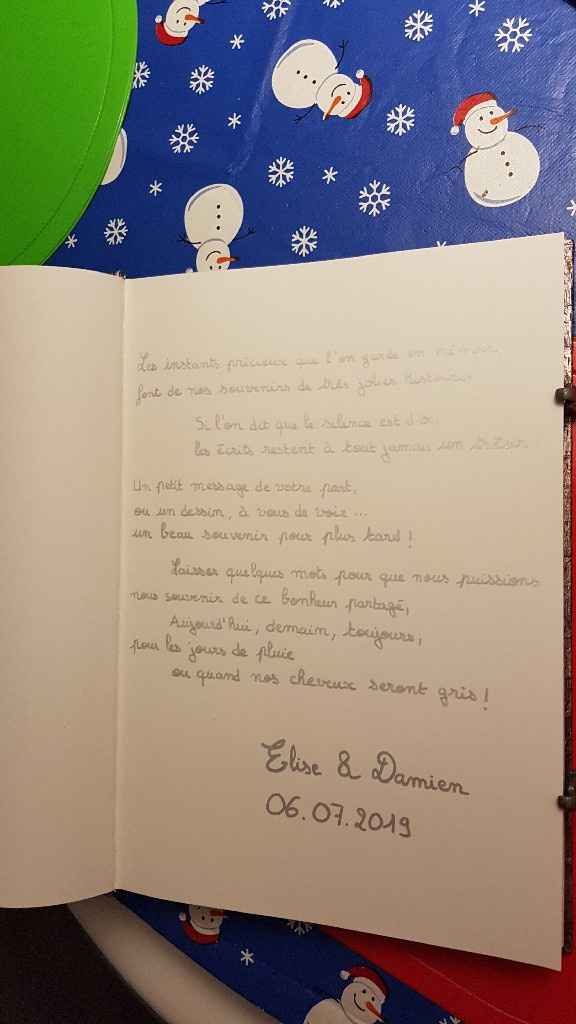 Les instants précieux que l'on garde en mémoire
font de nos souvenirs de très jolies histoires.
Si l'on dit que le silence est d'or,
les écrits restent à tout jamais un trésor.
Un petit message de votre part,
ou un dessin, à vous de voir ...
un beau souvenir pour plus tard !
Laisser quelques mots pour que nous puissions
nous souvenir de ce bonheur partagé,
Aujourd'hui, demain, toujours,
pour les jours de pluie
ou quand nos cheveux seront gris !
Elise & Damien
06.07.2019